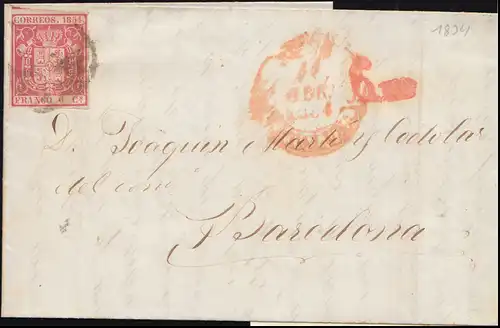 CORREOS. 1854.
FRANCO 6 Cs
1854
ABR
D. Joaquin Marti y Codolar
del comº
Barcelona